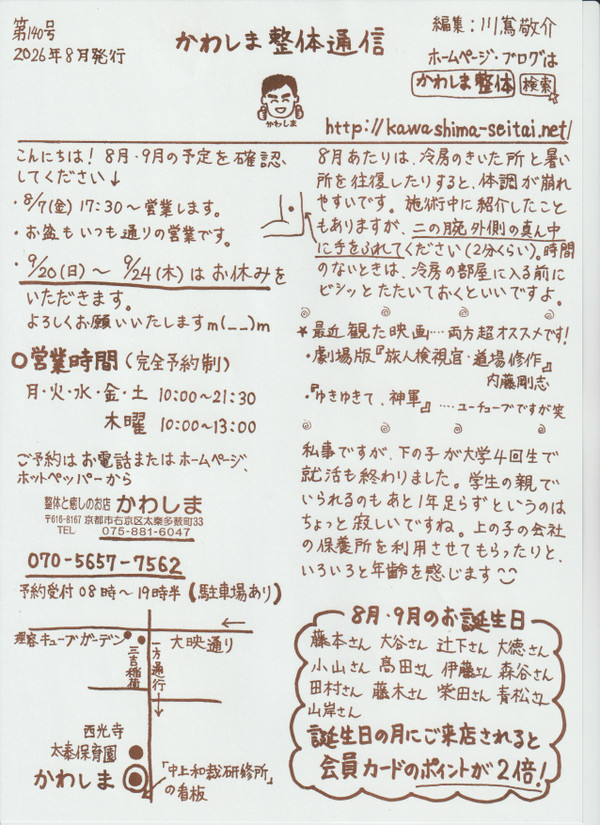 第140号
2026年8月発行
かわしま整体通信
編集：川嶌敬介
ホームページ・ブログは
かわしま整体 検索
かわしま
http://kawashima-seitai.net/
こんにちは！8月・9月の予定を確認、
してください↓
・8/7(金) 17:30～営業します。
・お盆もいつも通りの営業です。
・9/20(日)～ 9/24(木)はお休みを
いただきます。
よろしくお願いいたしますm(__)m
〇営業時間(完全予約制)
月・火・水・金・土 10:00～21:30
木曜 10:00～13:00
ご予約はお電話またはホームページ、
ホットペッパーから
整体と癒しのお店 かわしま
〒616-8167 京都市右京区太秦多藪町33
TEL 075-881-6047
070-5657-7562
予約受付08時～19時半(駐車場あり)
理容キューブガーデン
三吉稲荷
一方通行→
大映通り
←
西光寺
太秦保育園
かわしま
「中上和裁研修所」
の看板
8月あたりは、冷房のきいた所と暑い
所を往復したりすると、体調が崩れ
やすいです。施術中に紹介したこと
もありますが、二の腕外側の真ん中
に手をふれてください(2分くらい)。時間
のないときは、冷房の部屋に入る前に
ビシッとたたいておくといいですよ。
★最近観た映画…両方超オススメです！
・劇場版『旅人検視官・道場修作』
内藤剛志
・『ゆきゆきて、神軍』…ユーチューブですが笑
私事ですが、下の子が大学4回生で
就活も終わりました。学生の親で
いられるのもあと1年足らずというのは
ちょっと寂しいですね。上の子の会社
の保養所を利用させてもらったりと、
いろいろと年齢を感じます
8月・9月のお誕生日
藤本さん 大谷さん 辻下さん 大徳さん
小山さん 高田さん 伊藤さん 森谷さん
田村さん 藤木さん 柴田さん 青松さん
山岸さん
誕生日の月にご来店されると
会員カードのポイントが2倍！